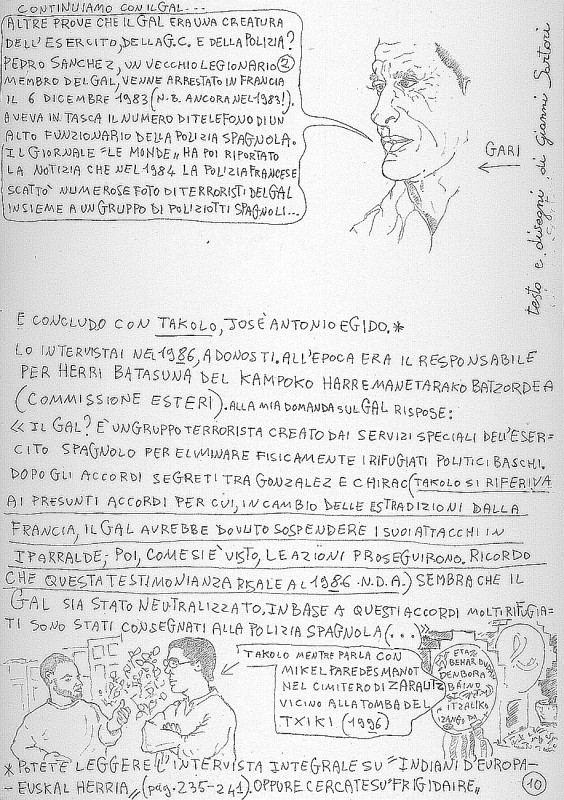 CONTINUIAMO CON IL GAL...
ALTRE PROVE CHE IL GAL ERA UNA CREATURA
DELL'ESERCITO, DELLA G.C. E DELLA POLIZIA?
PEDRO SANCHEZ, UN VECCHIO LEGIONARIO 2
MEMBRO DEL GAL, VENNE ARRESTATO IN FRANCIA
IL 6 DICEMBRE 1983 (N.B. ANCORA NEL 1983!).
AVEVA IN TASCA IL NUMERO DI TELEFONO DI UN
ALTO FUNZIONARIO DELLA POLIZIA SPAGNOLA.
IL GIORNALE "LE MONDE" HA POI RIPORTATO
LA NOTIZIA CHE NEL 1984 LA POLIZIA FRANCESE
SCATTO' NUMEROSE FOTO DI TERRORISTI DEL GAL
INSIEME A UN GRUPPO DI POLIZIOTTI SPAGNOLI...
GARI
testo e disegni di Gianni Sartori
E CONCLUDO CON TAKOLO, JOSE' ANTONIO EGIDO.*
LO INTERVISTAI NEL 1986, A DONOSTI. ALL'EPOCA ERA IL RESPONSABILE
PER HERRI BATASUNA DEL KAMPOKO HARREMANETARAKO BATZORDEA
(COMMISSIONE ESTERI). ALLA MIA DOMANDA SUL GAL RISPOSE:
« IL GAL? E' UN GRUPPO TERRORISTA CREATO DAI SERVIZI SPECIALI DELL'ESER=
CITO SPAGNOLO PER ELIMINARE FISICAMENTE I RIFUGIATI POLITICI BASCHI.
DOPO GLI ACCORDI SEGRETI TRA GONZALEZ E CHIRAC (TAKOLO SI RIFERIVA
AI PRESUNTI ACCORDI PER CUI, IN CAMBIO DELLE ESTRADIZIONI DALLA
FRANCIA, IL GAL AVREBBE DOVUTO SOSPENDERE I SUOI ATTACCHI IN
IPARRALDE; POI, COME SI E' VISTO, LE AZIONI PROSEGUIRONO. RICORDO
CHE QUESTA TESTIMONIANZA RISALE AL 1986 - N.D.A.) SEMBRA CHE IL
GAL SIA STATO NEUTRALIZZATO. IN BASE A QUESTI ACCORDI MOLTI RIFUGIA=
TI SONO STATI CONSEGNATI ALLA POLIZIA SPAGNOLA (...)»
TAKOLO MENTRE PARLA CON
MIKEL PAREDES MANOT
NEL CIMITERO DI ZARAUTZ
VICINO ALLA TOMBA DEL
TXIKI (1996)
ETA
BEHAR DU
DENBORA
BAINO
ITZALIKO
IZANGO DA
* POTETE LEGGERE L'INTERVISTA INTEGRALE SU "INDIANI D'EUROPA -
- EUSKAL HERRIA" (pag. 235-241). OPPURE CERCATE SU "FRIGIDAIRE"
10